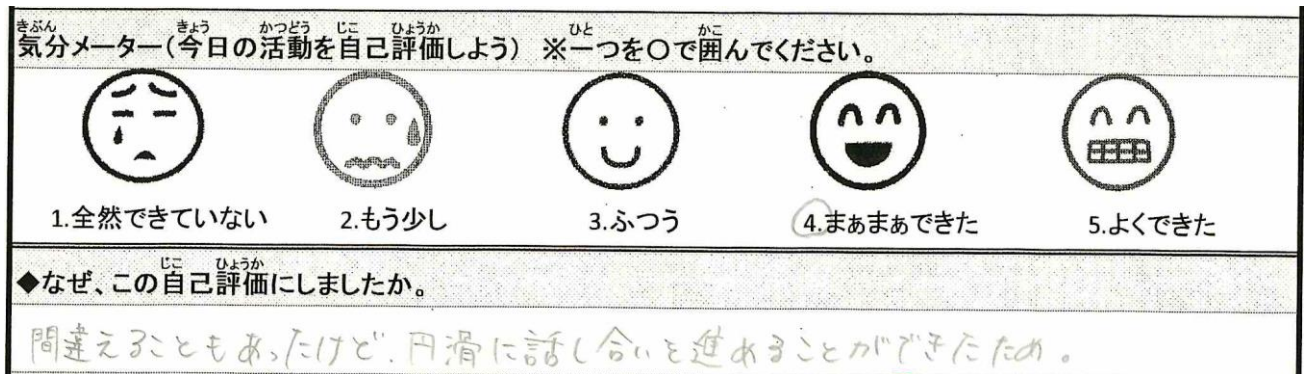 気分メーター(今日の活動を自己評価しよう) ※一つを○で囲んでください。
1.全然できていない 2.もう少し 3.ふつう 4.まぁまぁできた 5.よくできた
◆なぜ、この自己評価にしましたか。
間違えることもあったけど、円滑に話し合いを進めることができたため。